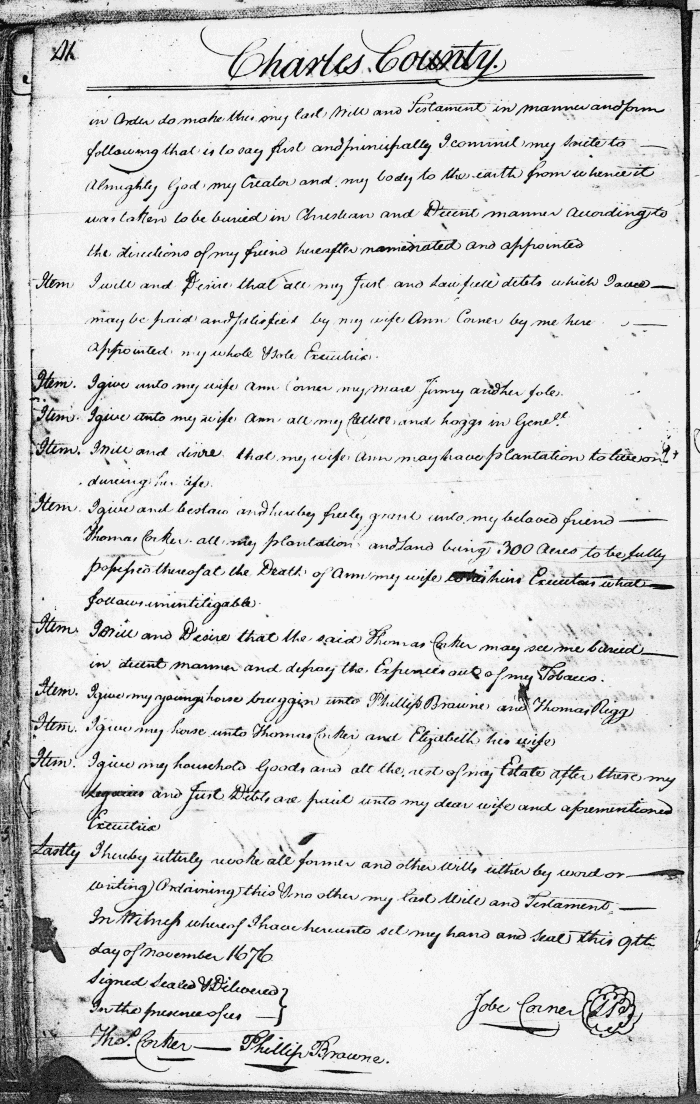 Charles County.
in Order do make this my last Will and Testament in manner and form
following that is to say first and principally I commit my to —
Almighty God my Creator and my body to the earth from whence it
was taken to be buried in Christian and Decent manner according to
the directions of my friend hereafter nominated and appointed
Item I will and Desire that all my Just and Lawfull debts which I owe —
may be paid and satisfied by my wife Ann Corner by me here —
appointed my whole & sole Executrix.
Item. I give unto my wife Ann Corner my mare Jinny and her fole.
Item. I give unto my wife Ann all my Cattle and hoggs in Gene.ll
Item. I Will and desire that my wife Ann may have plantation to live on
during her life.
Item. I give and bestow and hereby freely grant unto my beloved friend —
Thomas Corker all my plantation and Land being 300 Acres to be fully
possessed thereof at the Death of Ann my wife his Executors what —
follows unintiligable.
Item. I Will and Desire that the said Thomas Corker may see me buried —
in decent manner and defray the Expences out of my Tobacco.
Item. I give my young horse unto Phillip Browne and Thomas Rigg
Item. I give my horse unto Thomas Corker and Elizabeth his wife
Item. I give my household Goods and all the rest of my Estate after these my
Legacies and Just Debts are paid unto my dear wife and aforementioned
Executrix
Lastly I hereby utterly revoke all former and other Wills either by word or —
writing Ordaining this & no other my last Will and Testament. —
In Witness whereof I have hereunto set my hand and Seal this 9th
day of november 1676
Signed Sealed & Delivered }
In the presence of us — }
Jobe Corner
Tho.s Corker — Phillip Browne.